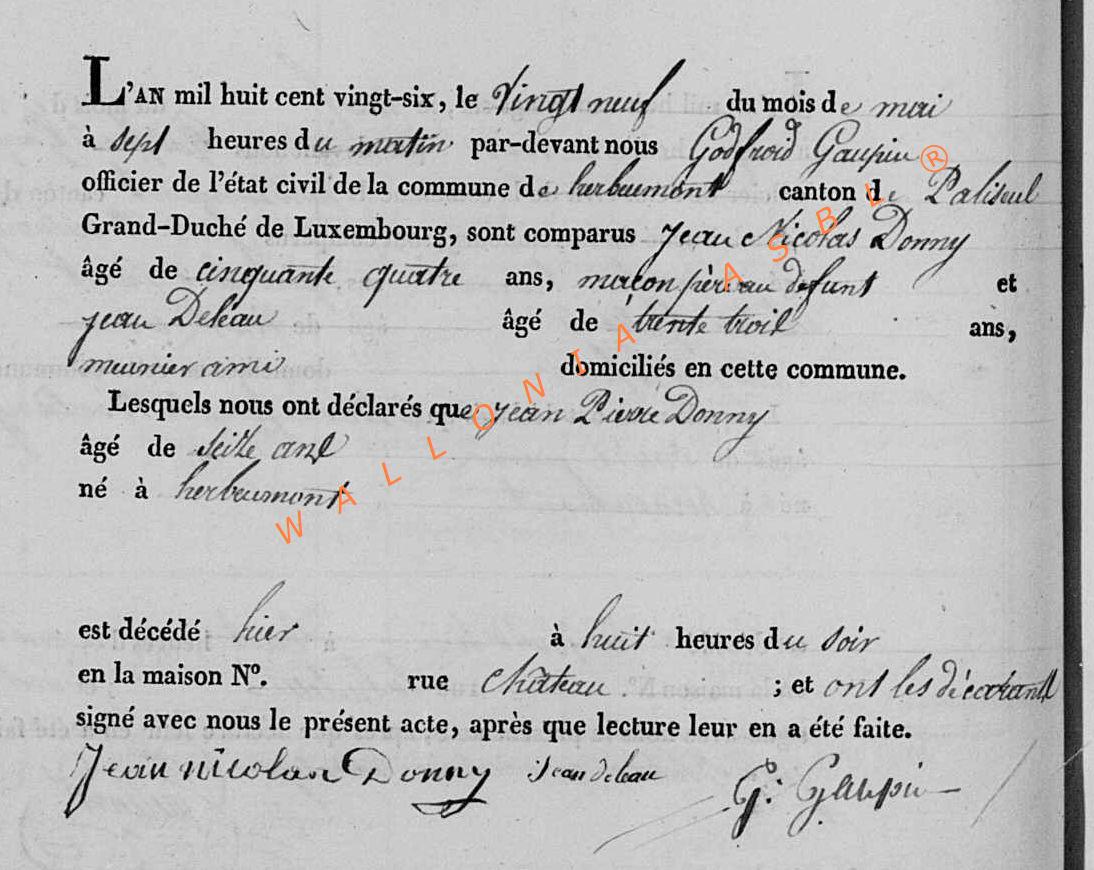 L'AN mil huit cent vingt-six, le Vingt neuf du mois de mai
à sept heures du matin par-devant nous Godfroid Gaupin
officier de l'état civil de la commune de herbeumont canton de Paliseul
Grand-Duché de Luxembourg, sont comparus Jean Nicolas Donny
âgé de cinquante quatre ans, maçon père au défunt et
jean Deleau âgé de trente trois ans,
meunier ami domiciliés en cette commune.
Lesquels nous ont déclarés que jean Pierre Donny
âgé de seize ans
né à herbeumont
est décédé hier à huit heures du soir
en la maison N°. rue château ; et ont les déclarants
signé avec nous le présent acte, après que lecture leur en a été faite.
Jean nicolas Donny jean deleau G: Gaupin
WALLONIA ASBL ®